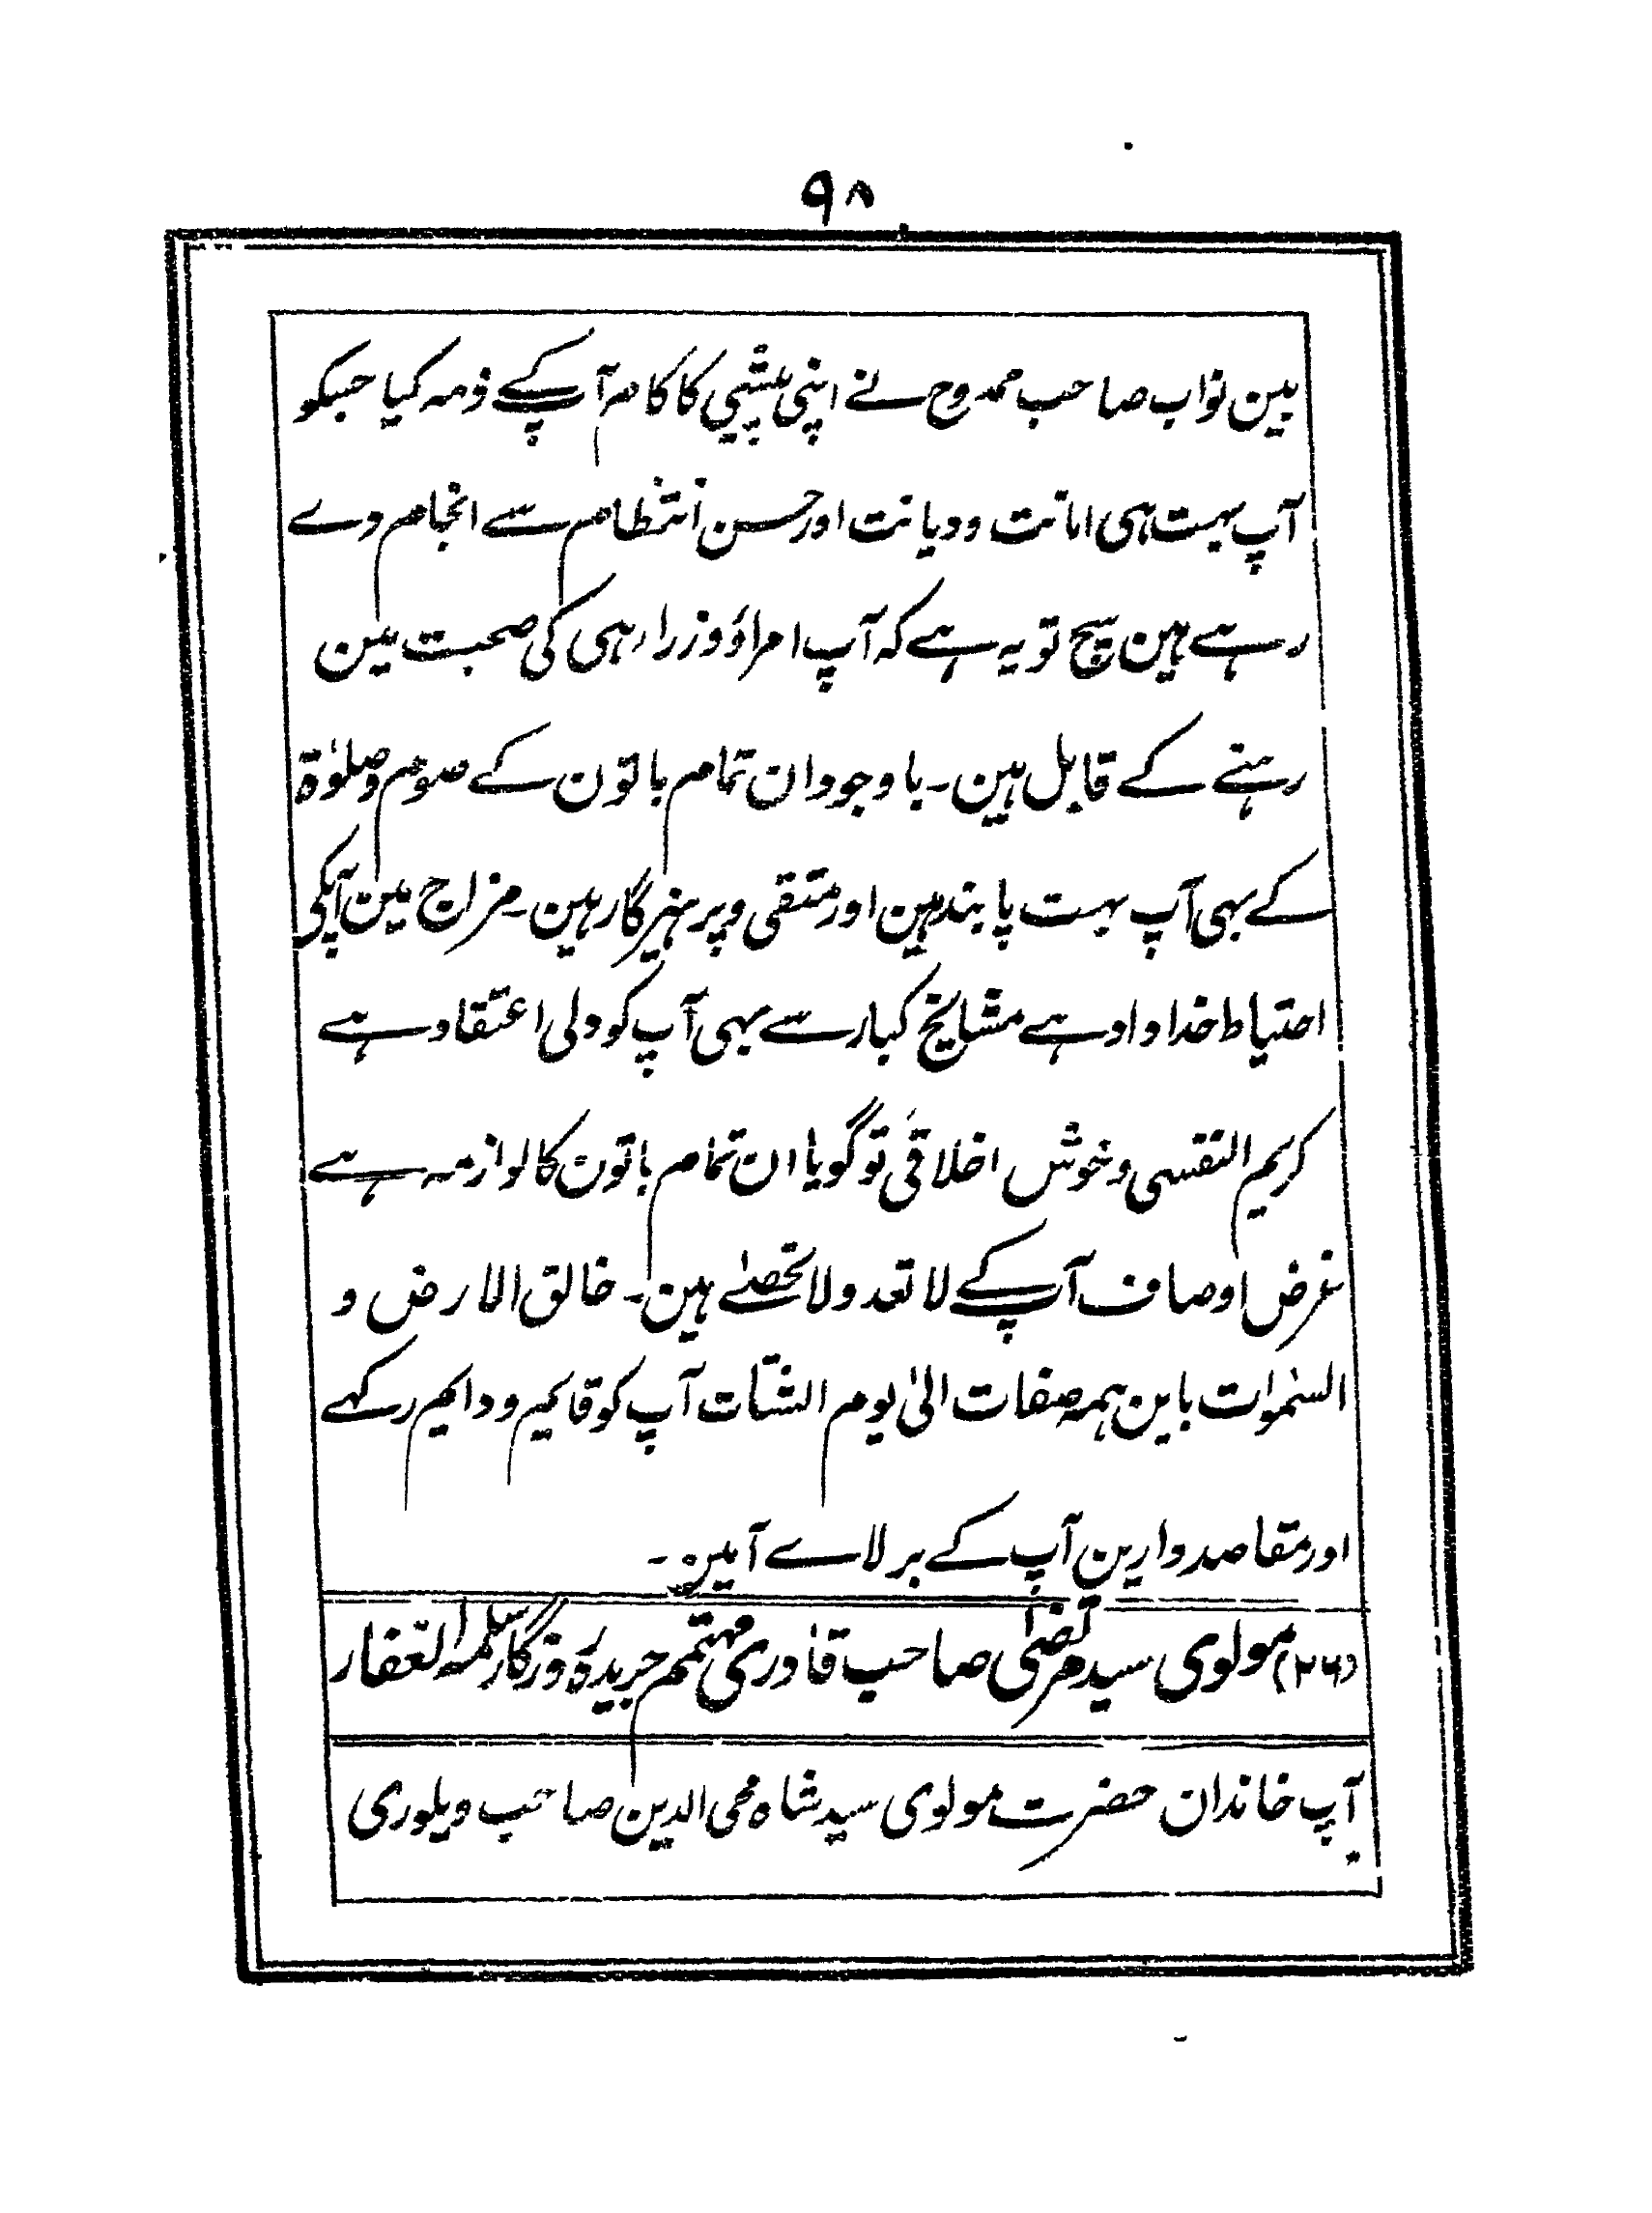 ۹۸
مین نواب صاحب ممدوح نے اپنی پیشی کا کام آپ کے ذمہ کیا جسکو
آپ بہت ہی امانت و دیانت اور حسن انتظام سے انجام دے
رہے ہین سچ تو یہ ہے کہ آپ امراؤ وزراء ہی کی صحبت مین
رہنے کے قابل ہین۔ باوجود ان تمام باتون کے صوم و صلوٰۃ
کے بہی آپ بہت پابند ہین اور متقی و پرہیزگار ہین۔ مزاج مین آپکی
احتیاط خداداد ہے مشایخ کبار سے بہی آپ کو دلی اعتقاد ہے
کریم النفسی و خوش اخلاقی تو گویا ان تمام باتون کا لوازمہ ہے
غرض اوصاف آپ کے لا تعد ولا تحصٰے ہین۔ خالق الارض و
السمٰوات باین ہمہ صفات الیٰ یوم آپ کو قایم و دایم رکہے
اور مقاصد دارین آپ کے بر لاے آمین۔
(۲۶) مولوی سید مرتضیٰ صاحب قادری مہتمم جریدۂ روزگار سلمہ الغفار
آپ خاندان حضرت مولوی سید شاہ محی الدین صاحب ویلوری